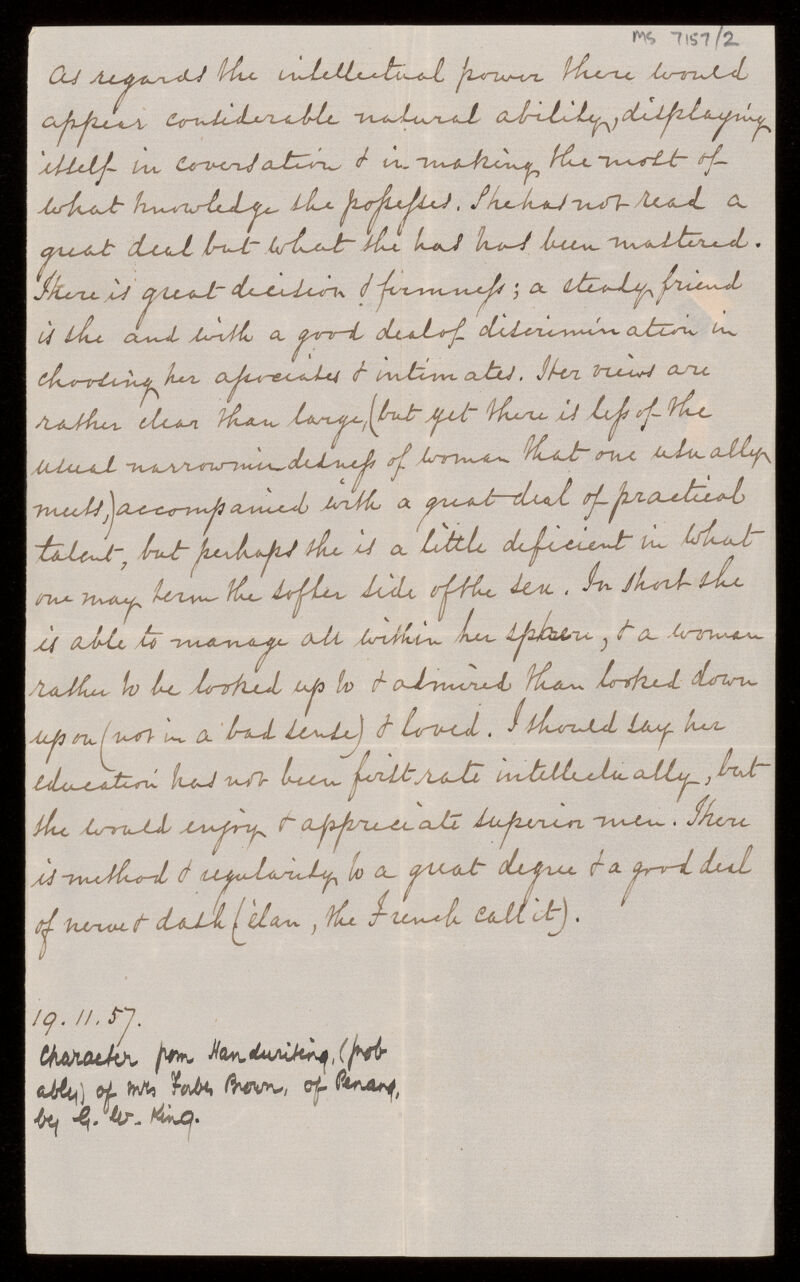 MS 7157/2
As regards the intellectual power there would
appear considerable natural ability, displaying
itself in coversation & in making the most of
what knowledge she poſseſses. She has not read a
great deal but what she has has been mastered.
There is great decision & firmneſs; a steady friend
is she and with a good deal of discrimination in
choosing her aſsociates & intimates. Her views are
rather clear than large, (but yet there is leſs of the
usual narrowmindedneſs of woman that one usually
meets,) accompanied with a great deal of practical
talent, but perhaps she is a little deficient in what
one may term the softer side of the sex. In short she
is able to manage all within her sphere, & a woman
rather to be looked up to & admired than looked down
upon (not in a bad sense) & loved. I should say her
education has not been first rate intellectually, but
she would enjoy & appreciate superior men. There
is method & regularity to a great degree & a good deal
of nerve & dash (élan, the French call it).
19.11.57.
Character from Handwriting, (prob
ably) of Mrs Forbes Brown, of Penang,
by G. W. King.